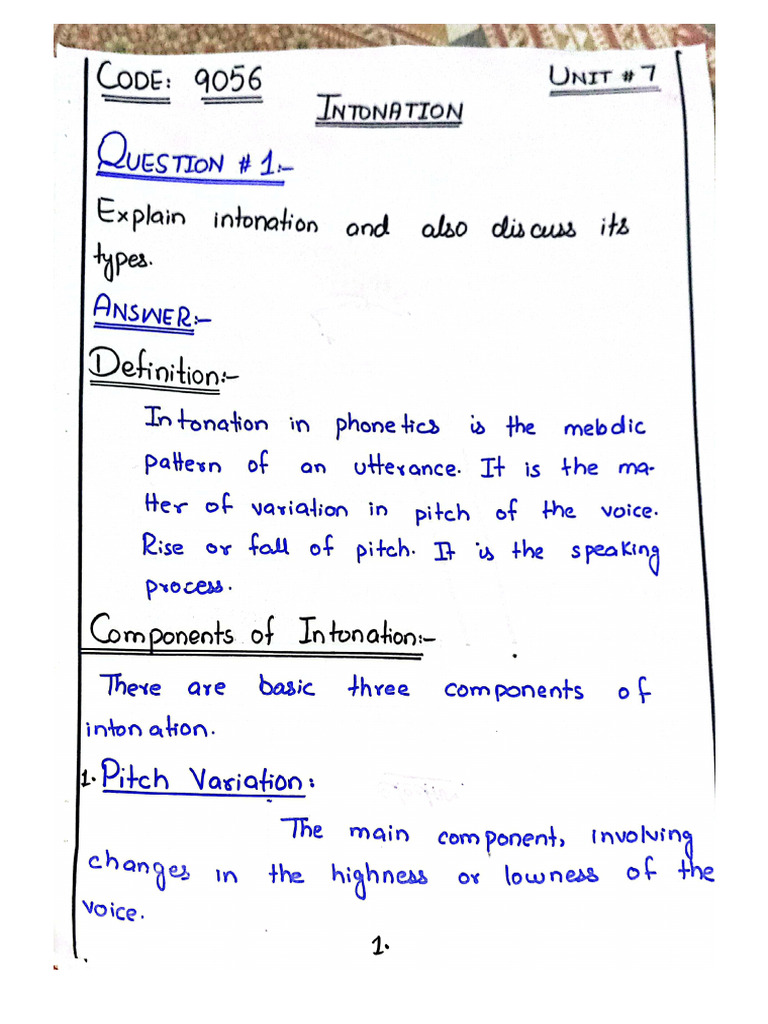 CODE: 9056
UNIT # 7
INTONATION
QUESTION # 1:-
Explain intonation and also discuss its
types.
ANSWER:-
Definition:-
Intonation in phonetics is the melodic
pattern of an utterance. It is the ma-
tter of variation in pitch of the voice.
Rise or fall of pitch. It is the speaking
process.
Components of Intonation:-
There are basic three components of
intonation.
1. Pitch Variation:
The main component, involving
changes in the highness or lowness of the
voice.
1.